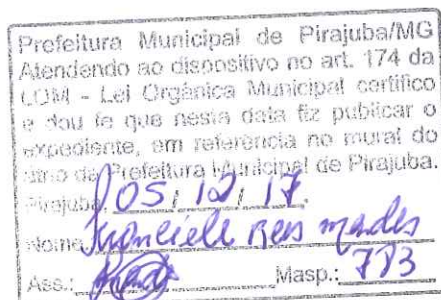 Prefeitura Municipal de Pirajuba/MG
Atendendo ao dispositivo no art. 174 da
LOM - Lei Orgânica Municipal certifico
e dou fe que nesta data fiz publicar o
expediente, em referência no mural do
átrio da Prefeitura Municipal de Pirajuba.
Pirajuba, 05, 12, 17.
Nome: Franciele Reis Mendes
Ass.: Masp.: 783